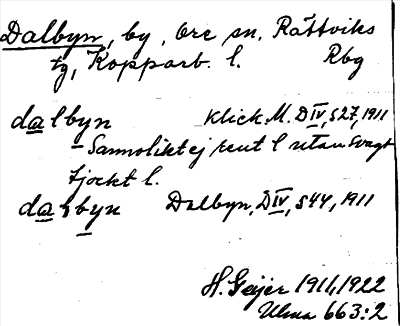 Dalbyn, by, Ore sn, Rättviks
tg, Kopparb. l. Rbg
dalbyn Klick. M. DIV, s 27, 1911
– Sannolikt ej rent l utan svagt
tjockt l.
dalbyn Dalbyn, DIV, s 44, 1911
H. Geijer 1911, 1922
Ulma 663:2